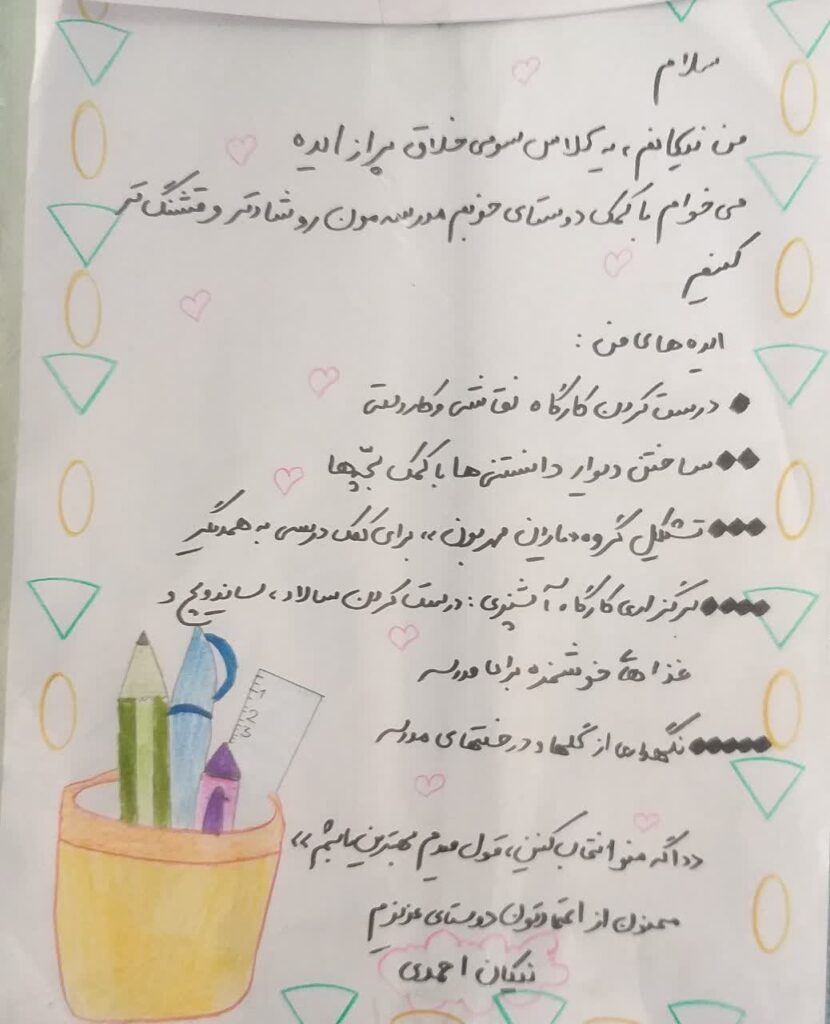 سلام
من نیکانم، یه کلاس سومی خلاق پر از ایده
می خوام با کمک دوستای خوبم مدرسه مون رو شادتر و قشنگ تر
کنیم
ایده های من :
درست کردن کارگاه نقاشی و کاردستی
ساختن دیوار دانستنی ها با کمک بچّه‌ها
تشکیل گروه «یاران مهربون» برای کمک درسی به همدیگر
برگزاری کارگاه آشپزی : درست کردن سالاد، ساندویچ و
غذاهای خوشمزه برای مدرسه
نگهداری از گلها و درختهای مدرسه
«اگه منو انتخاب کنین، قول میدم بهترین باشم»
ممنون از اعتمادتون دوستای عزیزم
نیکان احمدی
1 2 3